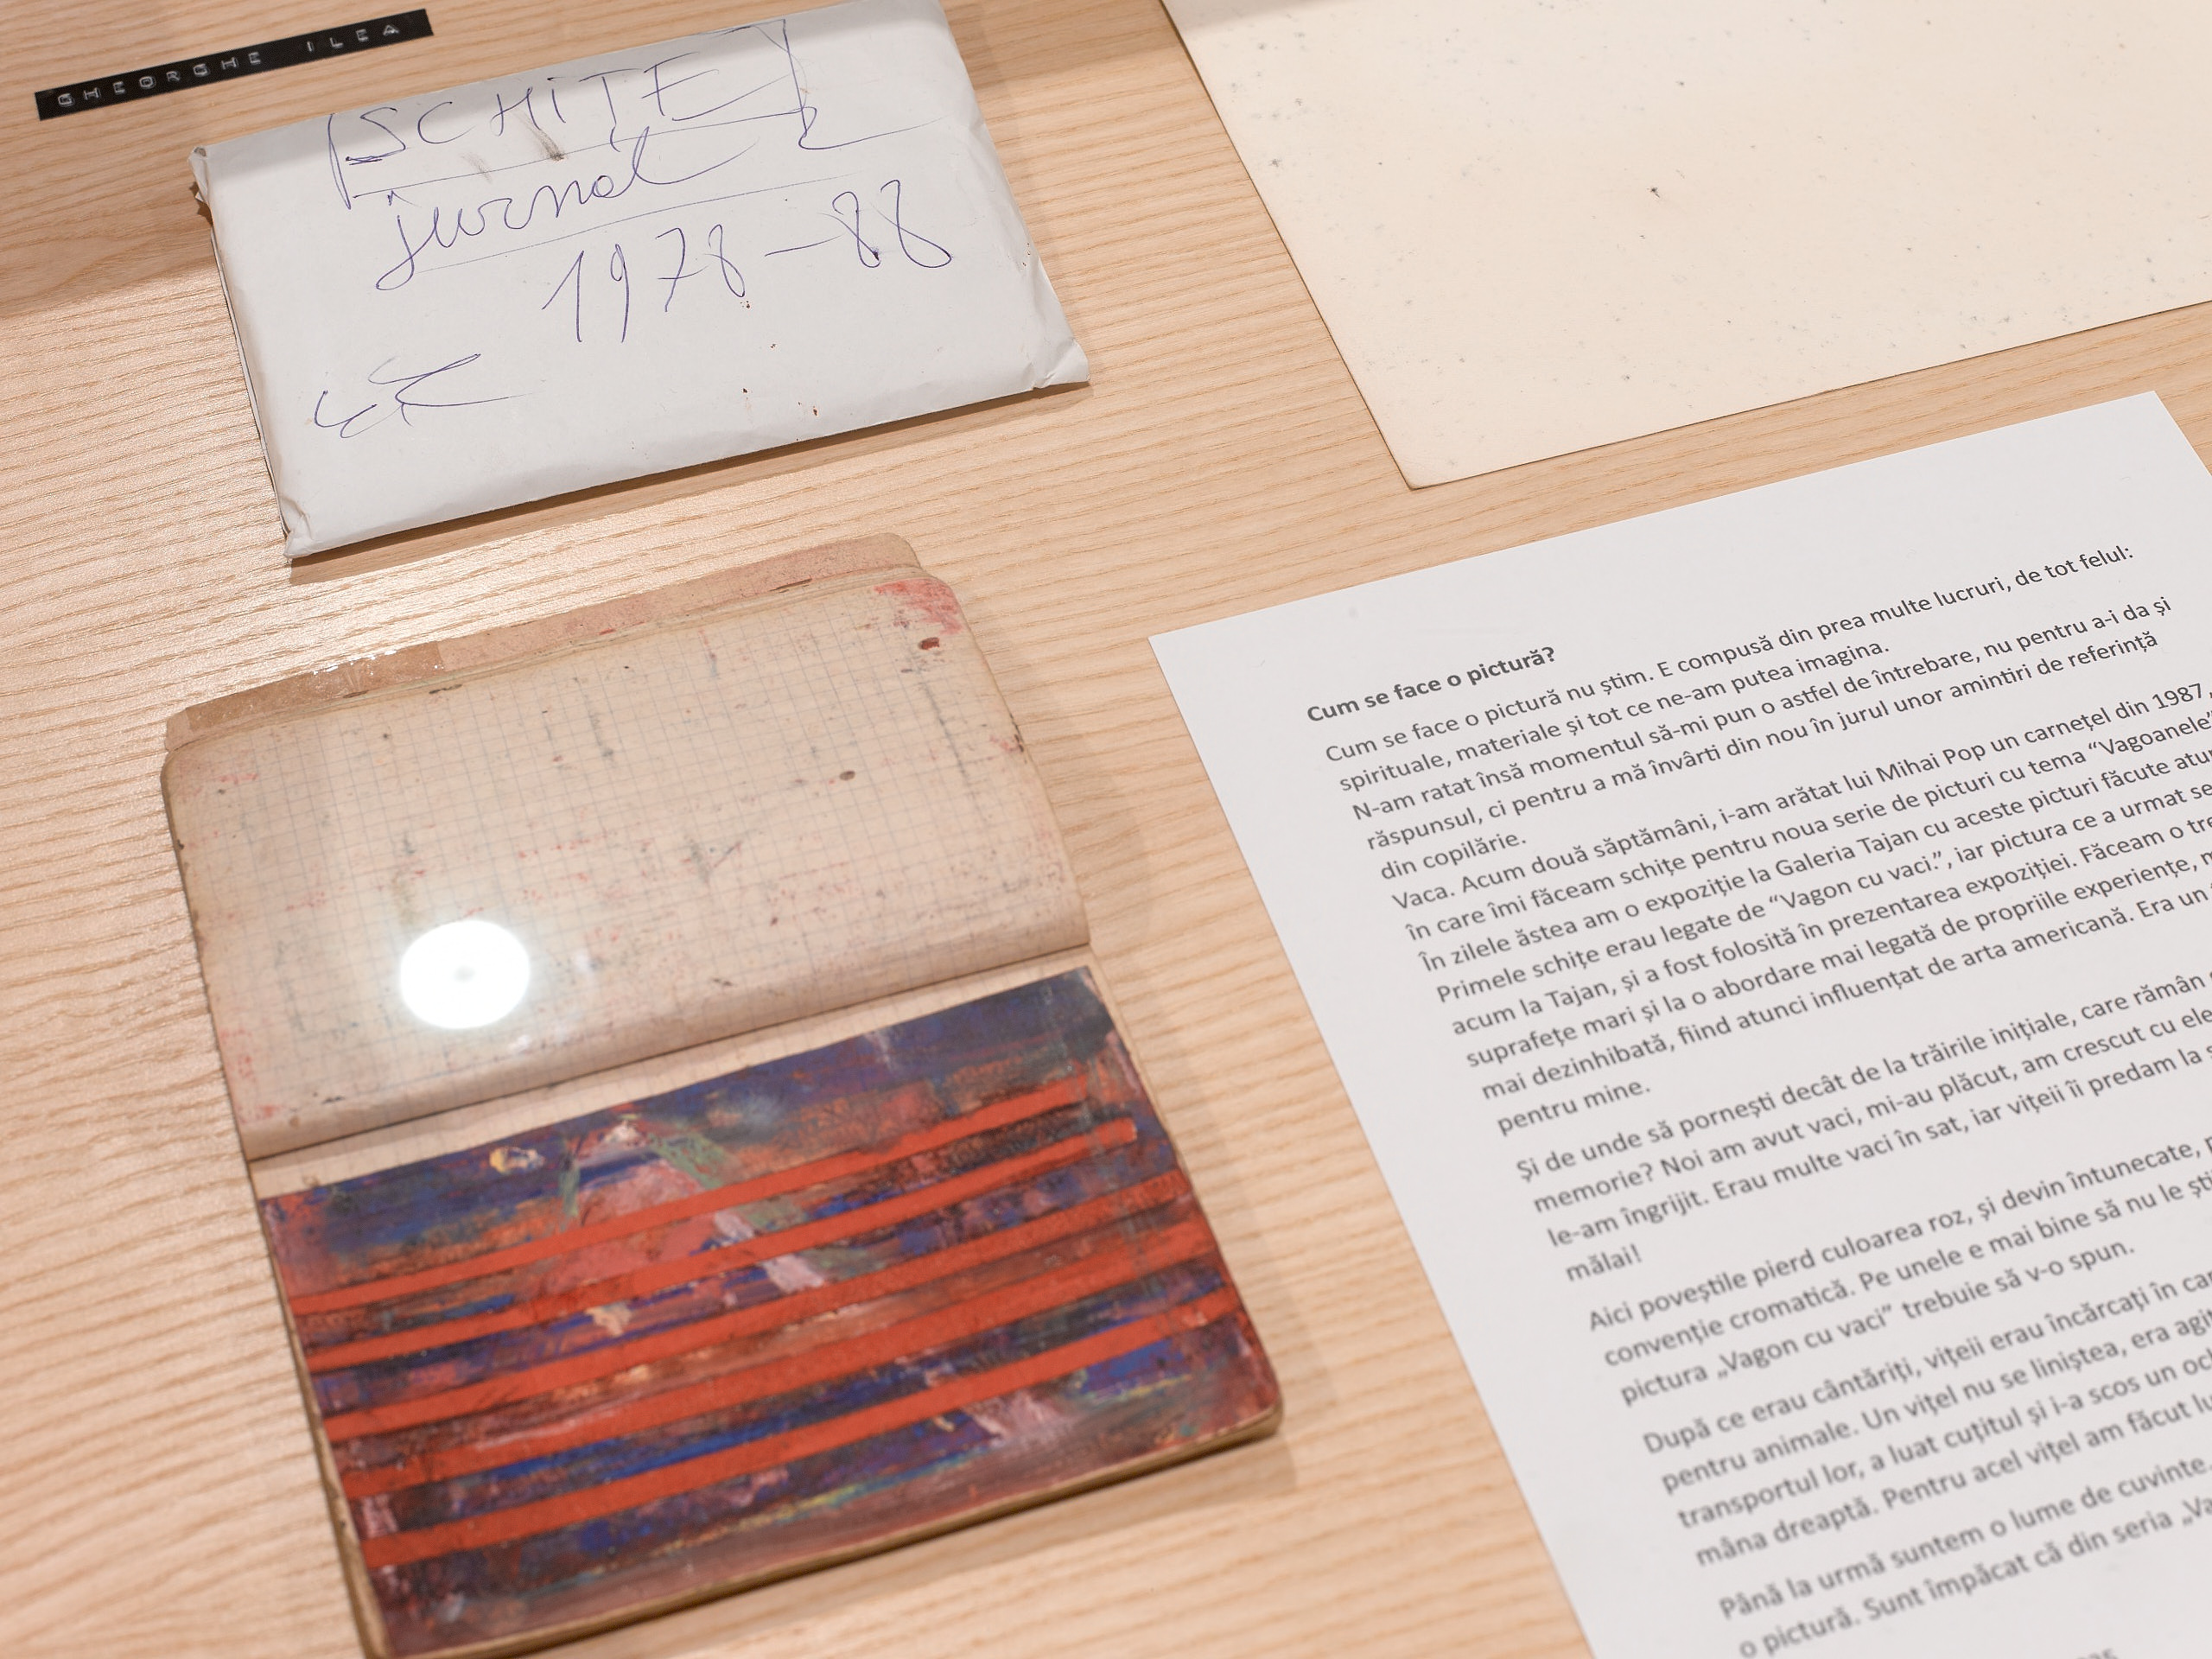 GHEORGHE ILEA
SCHIȚE
jurnal
1978-88
Cum se face o pictură?
Cum se face o pictură nu știm. E compusă din prea multe lucruri, de tot felul:
spirituale, materiale și tot ce ne-am putea imagina.
N-am ratat însă momentul să-mi pun o astfel de întrebare, nu pentru a-i da și
răspunsul, ci pentru a mă învârti din nou în jurul unor amintiri de referință
din copilărie.
Vaca. Acum două săptămâni, i-am arătat lui Mihai Pop un carnețel din 1987,
în care îmi făceam schițe pentru noua serie de picturi cu tema “Vagoanele”
În zilele ăstea am o expoziție la Galeria Tajan cu aceste picturi făcute
Primele schițe erau legate de “Vagon cu vaci.”, iar pictura ce a urmat
acum la Tajan, și a fost folosită în prezentarea expoziției. Făceam o
suprafețe mari și la o abordare mai legată de propriile experiențe,
mai dezinhibată, fiind atunci influențat de arta americană. Era un
pentru mine.
Și de unde să pornești decât de la trăirile inițiale, care rămân
memorie? Noi am avut vaci, mi-au plăcut, am crescut cu ele
le-am îngrijit. Erau multe vaci în sat, iar vițeii îi predam la
mălai!
Aici poveștile pierd culoarea roz, și devin întunecate,
convenție cromatică. Pe unele e mai bine să nu le
pictura „Vagon cu vaci” trebuie să v-o spun.
După ce erau cântăriți, vițeii erau încărcați în
pentru animale. Un vițel nu se liniștea, era
transportul lor, a luat cuțitul și i-a scos un
mâna dreaptă. Pentru acel vițel am făcut
Până la urmă suntem o lume de cuvinte.
o pictură. Sunt împăcat că din seria